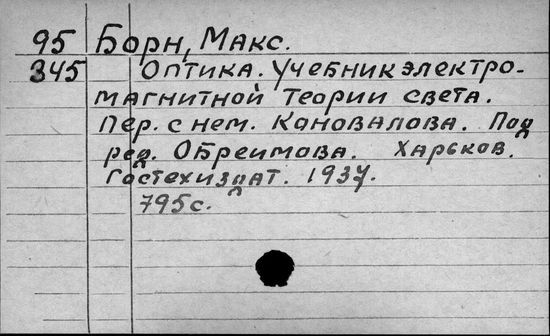 95 Борн, Макс.
345 Оптика. Учебник электро-
магнитной теории света.
Пер. с нем. Кановалова. Под
ред. Обреимова. Харьков.
Гостехиздат. 1937.
795с.